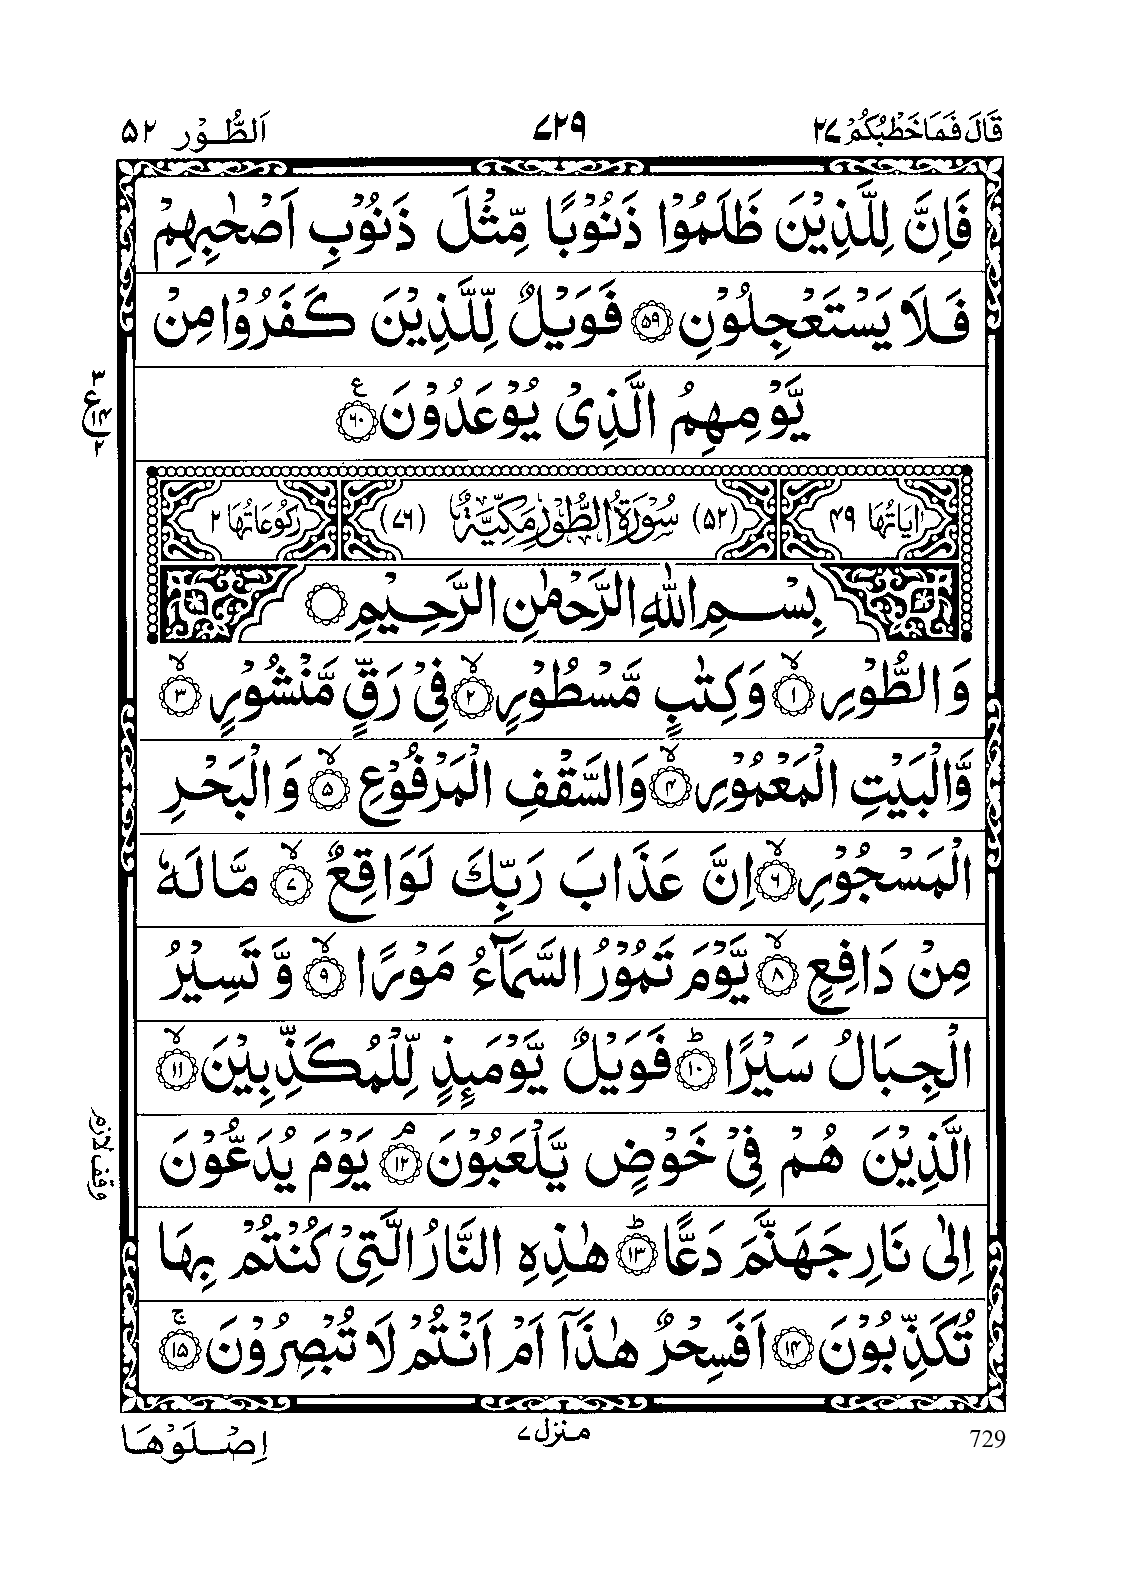 قَالَ فَمَا خَطْبُكُمْ ٢٧ ٧٢٩ اَلطُّوْر ٥٢
فَاِنَّ لِلَّذِيْنَ ظَلَمُوْا ذَنُوْبًا مِّثْلَ ذَنُوْبِ اَصْحٰبِهِمْ
فَلَا يَسْتَعْجِلُوْنِ ۝٥٩ فَوَيْلٌ لِّلَّذِيْنَ كَفَرُوْا مِنْ
يَّوْمِهِمُ الَّذِيْ يُوْعَدُوْنَ ۝٦٠ ع
٣
ع ١٤
٢
اٰيَاتُهَا ٤٩ (٥٢) سُوْرَةُ الطُّوْرِ مَكِّيَّةٌ (٧٦) رُكُوْعَاتُهَا ٢
بِسْمِ اللّٰهِ الرَّحْمٰنِ الرَّحِيْمِ ۝
وَالطُّوْرِ ۝١ۙ وَكِتٰبٍ مَّسْطُوْرٍ ۝٢ۙ فِيْ رَقٍّ مَّنْشُوْرٍ ۝٣ۙ
وَّالْبَيْتِ الْمَعْمُوْرِ ۝٤ۙ وَالسَّقْفِ الْمَرْفُوْعِ ۝٥ۙ وَالْبَحْرِ
الْمَسْجُوْرِ ۝٦ۙ اِنَّ عَذَابَ رَبِّكَ لَوَاقِعٌ ۝٧ۙ مَّا لَهٗ
مِنْ دَافِعٍ ۝٨ۙ يَّوْمَ تَمُوْرُ السَّمَآءُ مَوْرًا ۝٩ۙ وَّتَسِيْرُ
الْجِبَالُ سَيْرًا ۝١٠ؕ فَوَيْلٌ يَّوْمَئِذٍ لِّلْمُكَذِّبِيْنَ ۝١١ۙ
الَّذِيْنَ هُمْ فِيْ خَوْضٍ يَّلْعَبُوْنَ ۝١٢ۘ يَوْمَ يُدَعُّوْنَ
وقف لازم
اِلٰى نَارِ جَهَنَّمَ دَعًّا ۝١٣ؕ هٰذِهِ النَّارُ الَّتِيْ كُنْتُمْ بِهَا
تُكَذِّبُوْنَ ۝١٤ اَفَسِحْرٌ هٰذَآ اَمْ اَنْتُمْ لَا تُبْصِرُوْنَ ۝١٥ۚ
729 منزل ٧ اِصْلَوْهَا